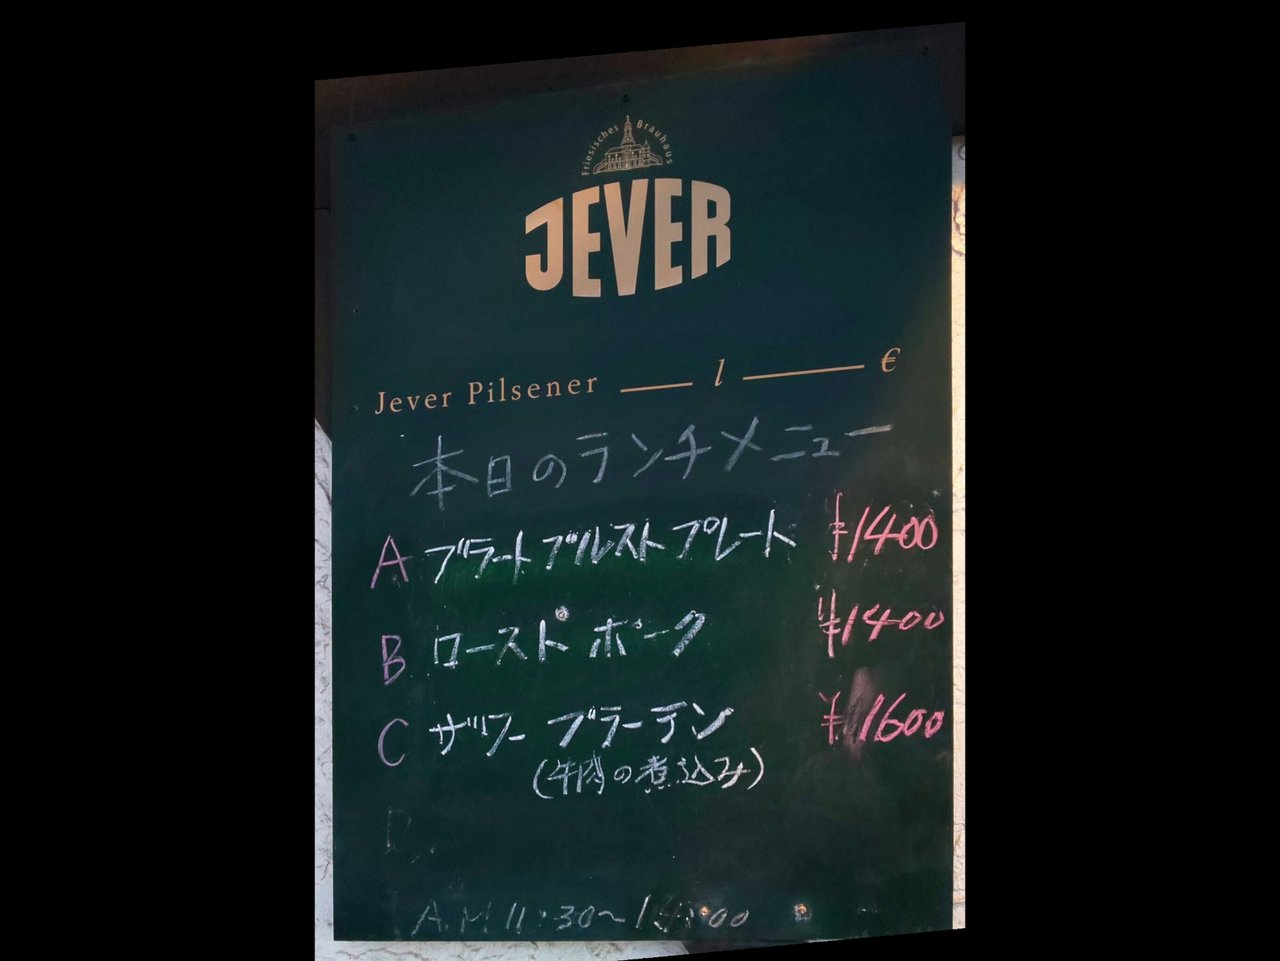 Friesisches Brauhaus
JEVER
Jever Pilsener l €
本日のランチメニュー
A ブラートブルストプレート ¥1400
B ローストポーク ¥1400
C ザワーブラーテン ¥1600
(牛肉の煮込み)
D
A.M 11:30~14:00